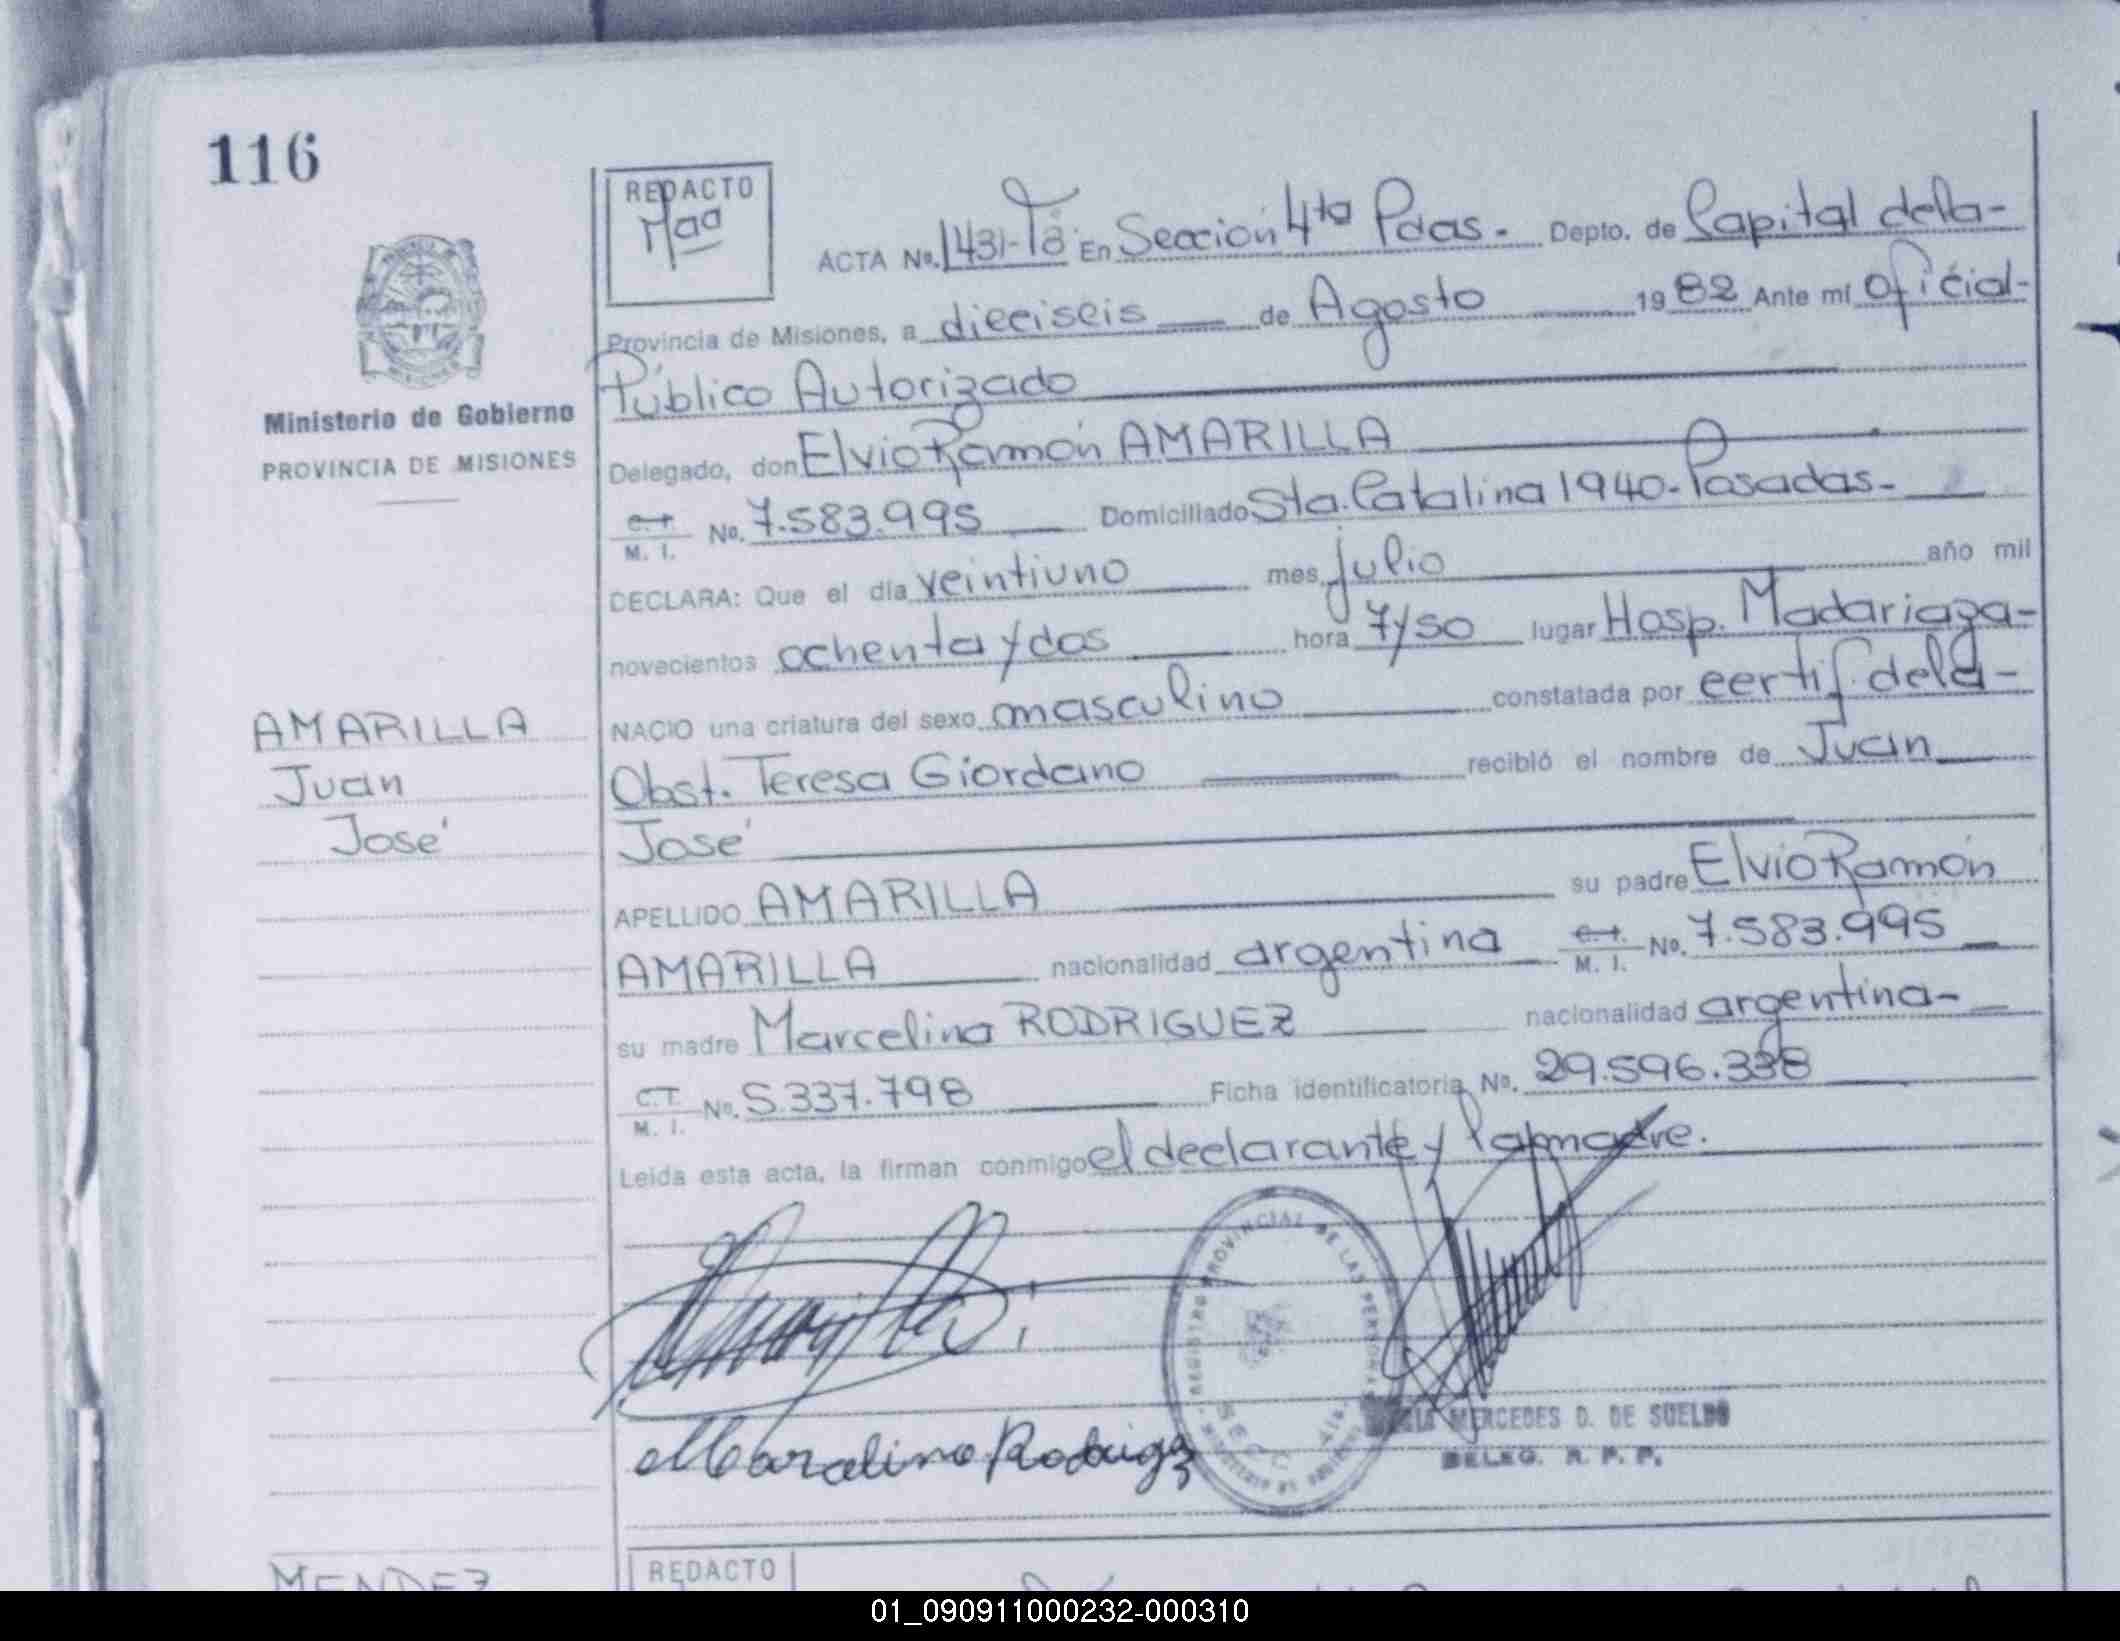 116
REDACTO
ACTA No. 1431-Tº En Sección 4ta Pdas.- Depto. de Capital dela-
Provincia de Misiones, a dieciseis de Agosto 1982 Ante mí Oficial-
Público Autorizado
Ministerio de Gobierno
PROVINCIA DE MISIONES
Delegado, don Elvio Ramón AMARILLA
C.I. M. I. No. 7.583.995 Domiciliado Sta. Catalina 1940-Posadas-
DECLARA: Que el día veintiuno mes julio año mil
novecientos ochenta y dos hora 7y50 lugar Hosp. Madariaga-
NACIO una criatura del sexo masculino constatada por certif. dela-
Obst. Teresa Giordano recibió el nombre de Juan
José
AMARILLA
Juan
José
APELLIDO AMARILLA su padre Elvio Ramón
AMARILLA nacionalidad argentina C.I. M. I. No. 7.583.995
su madre Marcelina RODRIGUEZ nacionalidad argentina-
C.I. M. I. No. 5.337.798 Ficha identificatoria No. 29.596.338
Leída esta acta, la firman conmigo el declarante y la madre.
REGISTRO PROVINCIAL DE LAS PERSONAS
Marcelina Rodriguez
MERCEDES D. DE SUELDO
DELEG. R. P. P.
MENDEZ
REDACTO
01_090911000232-000310